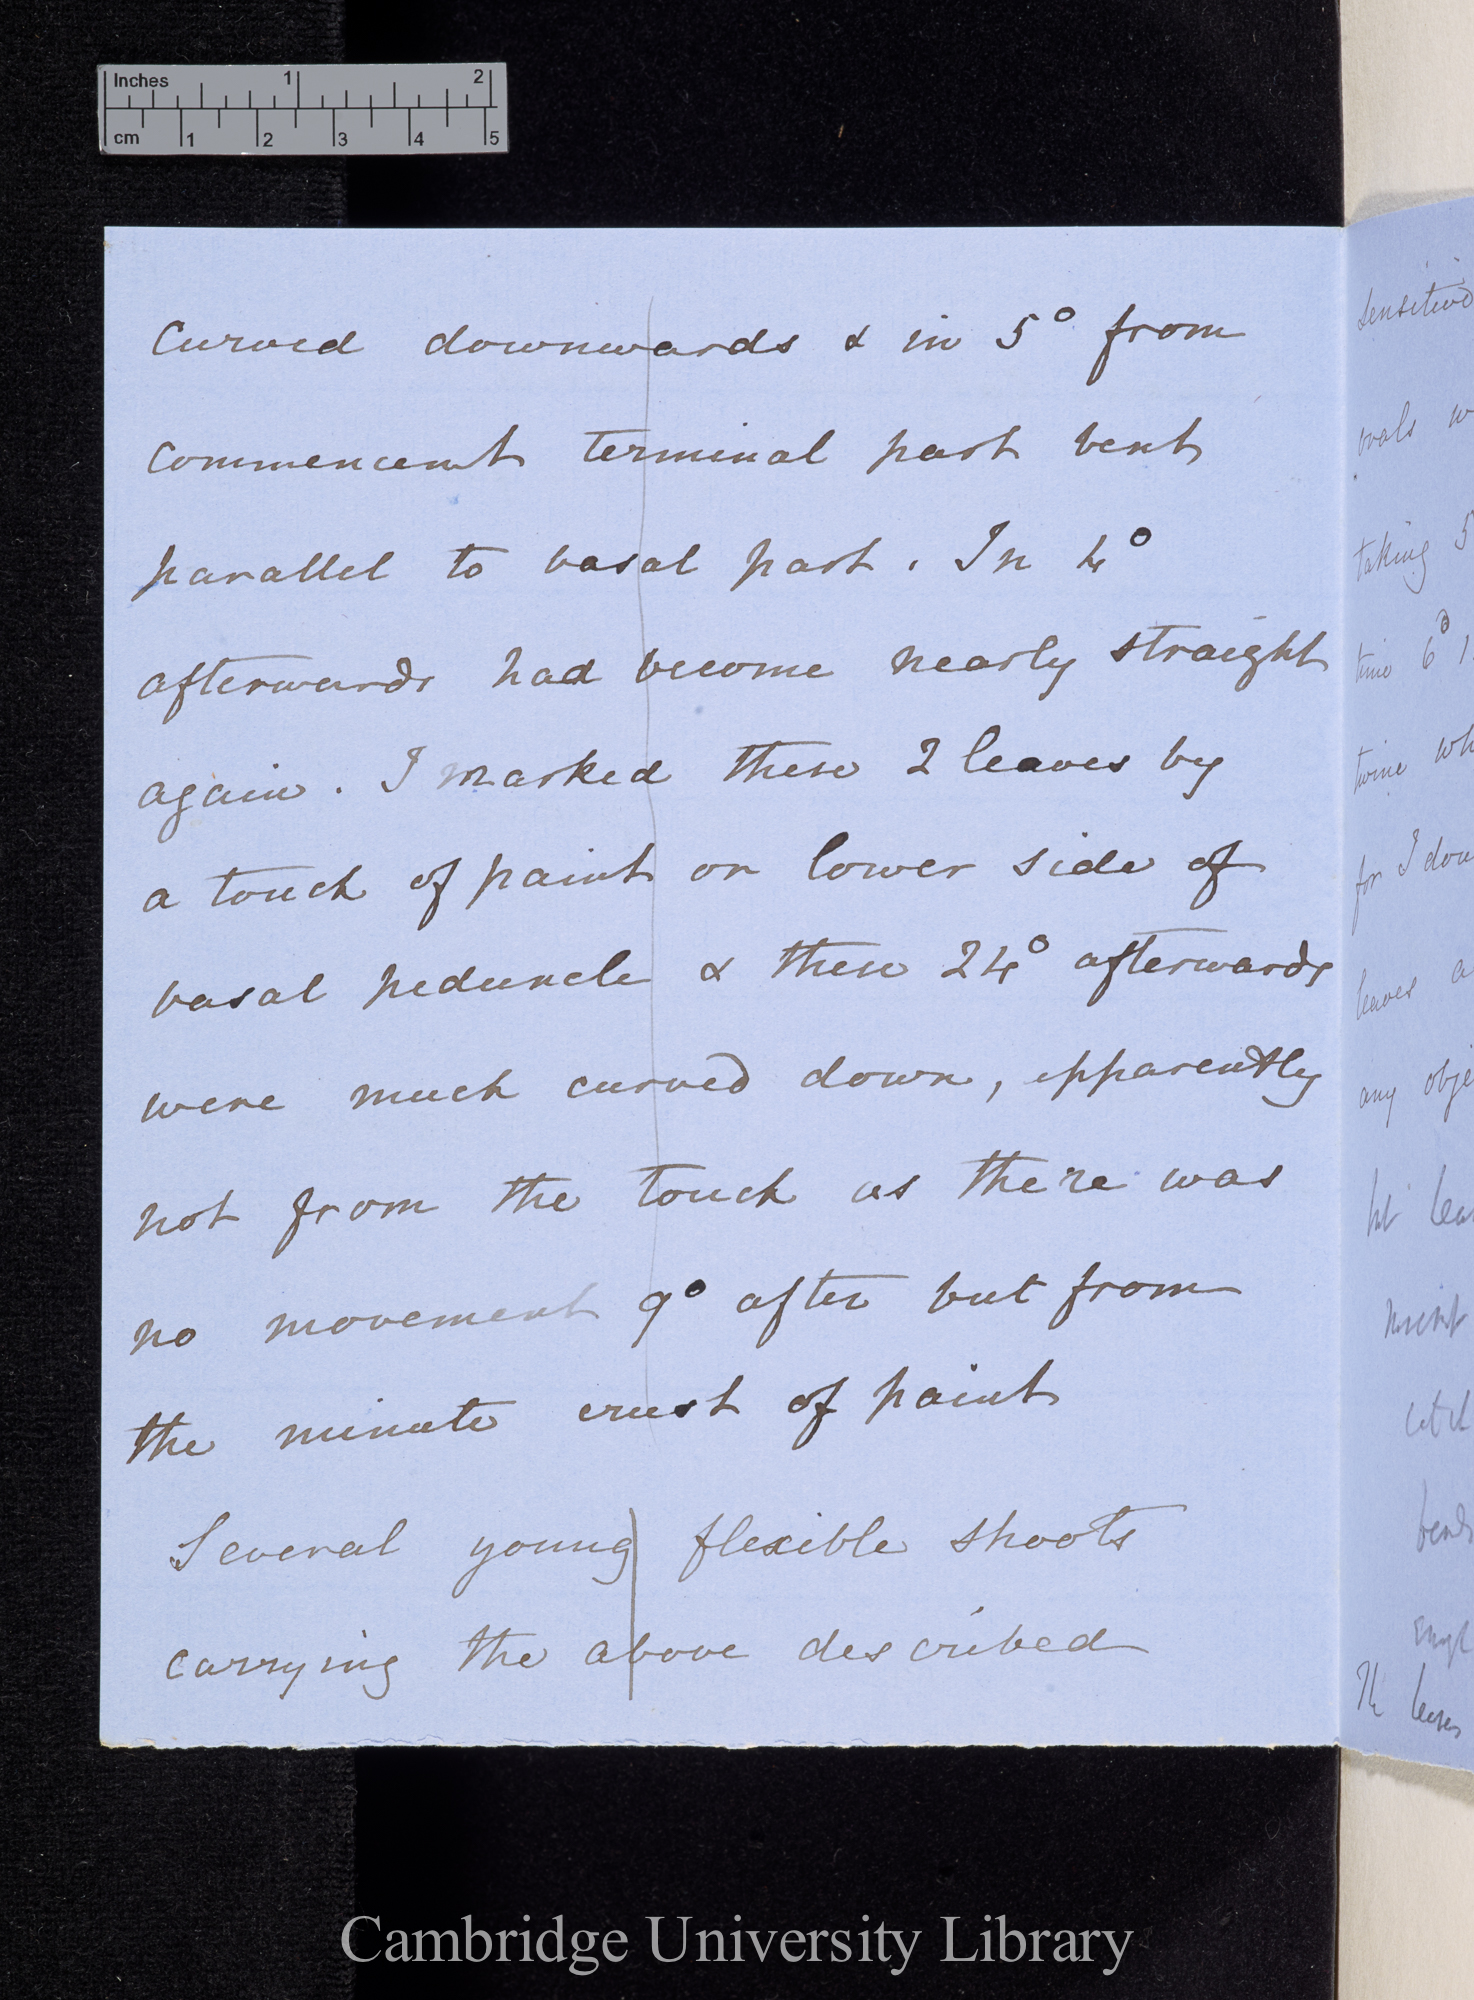 Inches 1 2
cm 1 2 3 4 5
Curved downwards & in 5° from
commencemt terminal part bent
parallel to basal part. In 4°
afterwards had become nearly straight
again. I marked these 2 leaves by
a touch of paint on lower side of
basal peduncle & these 24° afterwards
were much curved down, apparently
not from the touch as there was
no movement 9° after but from
the minute crust of paint
Several young flexible shoots
carrying the above described
sensitive
ovals w
taking 5
time 6°
twine wh
for I dou
leaves a
any obje
but lea
The leaves
Cambridge University Library